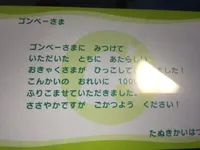 ゴンベーさま
ゴンベーさまに みつけて
いただいた とちに あたらしい
おきゃくさまが ひっこして
ました!
こんかいの おれいに 100
ふりこませていただきました
ささやかですが ごかつよう ください!
たぬきかいはつ